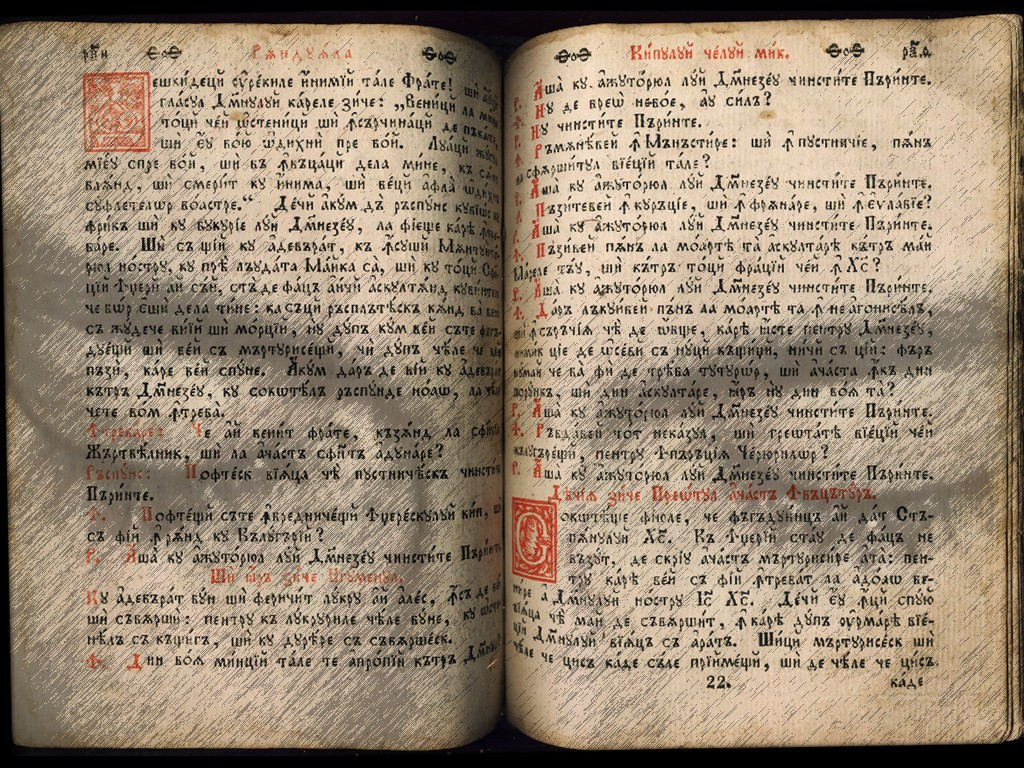 Рѫндꙋѧла
ешкидеци ꙋрекиле инимїй тале Фрате! ши аꙋ
гласул Дм҃нулуй кареле зиче: „Вениции ла мине
тоци чей ѡстеници ши ꙟсърчинаци де пъкате,
ши еу вою ѡдихни пре вой. Луаци жугул
мїеу спре вой, ши въ ꙟвъцаци дела мине, къ сѫнт
блѫнд, ши смерит ку инима, ши веци афла ѡдихнъ
суфлетелѡр воастре.“ Дечи акум дъ ръспунс кувїѡс
фрикъ ши ку букурїе луй Дм҃незеу, ла фїеще каре ꙟтре-
баре. Ши съ щїй ку адевърат, къ ꙟсуши Мѫнтуито-
рюл ностру, ку прѣ лъудата Майка са, ши ку тоци Сфин-
цїй Ꙟџерй ай съй, стъ де фацъ аичй аскултѫнд кувинтеле
че вѡр еши дела тине: ка съци ръсплътѣскъ кѫнд ва вени
съ жудече вїий ши морций, ну дупъ кум вей съте фъгъ-
дуещи ши вей съ мъртурисещи, чи дупъ чѣле че вей
пъзи, каре вей спуне. Акум даръ де вїй ку адевърат
кътръ Дм҃незеу, ку сокотѣлъ ръспунде ноаѡ, ла чѣле
чете вом ꙟтреба.
Ꙟтребаре: Че ай венит фрате, къзѫнд ла сфинтул
Жъртвѣлник, ши ла ачастъ сфѫнтъ адунаре?
Ръспунс: Пофтеск вїаца чѣ пустничѣскъ чинстите
Пъринте.
Ꙟ. Пофтещи съте ꙟвредничещи Ꙟџерескулуй кип, ши
съ фїй ꙟрѫнд ку Кълугърїй?
Р. Аша ку ажуторюл луй Дм҃незеу чинстите Пъринте.
Ши ꙗръ зиче Игуменул.
Ку адевърат бун ши феричит лукру ай алес, ꙟсъ де вей
ши съвърши: пентру къ лукруриле чѣле буне, ку остѣ-
нѣлъ съ къщигъ, ши ку дурѣре съ съвършеск.
Ꙟ. Дин воѧ минций тале те апропїй кътръ Дм҃незеу?
Кипулуй челуй мик.
Р. Аша ку ажуторюл луй Дм҃незеу чинстите Пъринте.
Ꙟ. Ну де вреѡ невое, ау силъ?
Р. Ну чинстите Пъринте.
Ꙟ. Ръмѫневей ꙟ Мънъстире: ши ꙟ пустничїе, пѫнъ
ла сфѫршитул вїецїй тале?
Р. Аша ку ажуторюл луй Дм҃незеу чинстите Пъринте.
Ꙟ. Пъзитевей ꙟ куръцїе, ши ꙟ фрѫнаре, ши ꙟ евлавїе?
Р. Аша ку ажуторюл луй Дм҃незеу чинстите Пъринте.
Ꙟ. Пъзивей пѫнъ ла моарте та аскултаре кътръ май
Мареле тъу, ши кътръ тоци фрацїй чей ꙟ Хс҃?
Р. Аша ку ажуторюл луй Дм҃незеу чинстите Пъринте.
Ꙟ. Даръ лъкуивей пънъ ла моартѣ та ꙟ не агонисѣлъ,
ши ꙟ съръчїѧ чѣ де ѡбще, каре ꙗсте пентру Дм҃незеу,
нимик цїе де ѡсеби съ нуци къщиий, ничй съ цїй: фъръ
нумай че ва фи де трѣба тутурѡр, ши ачаста ꙟкъ дин
порункъ, ши дин аскултаре, ꙗръ ну дин воѧ та?
Р. Аша ку ажуторюл луй Дм҃незеу чинстите Пъринте.
Ꙟ. Ръбдавей тот неказул, ши греѡтатѣ вїецїй чей
кълугърещи, пентру Ꙟпъръцїѧ Черюрилѡр?
Р. Аша ку ажуторюл луй Дм҃незеу чинстите Пъринте.
Дечїѧ зиче Преѡтул ачастъ Ꙟвъцътуръ.
Сокотѣще фїюле, че фъгъдуинцъ ай дат Стъ-
пѫнулуй Хс҃. Къ Ꙟџерїй стау де фацъ не
възут, де скрїу ачастъ мъртурисире ата: пен-
тру каре вей съ фїй ꙟтребат ла адоѡа ве-
нире а Дмнулуй ностру Іс҃ Хс҃. Дечй еу ꙟцй спуй
вїаца чѣ май де съвършит, ꙟ каре дупъ урмаре вїе-
цїй Дмнулуй вїацъ съ аратъ. Шици мъртурисеск ши
чѣле че цисъ каде съле прїимещй, ши де чѣле че цисъ
22. каде